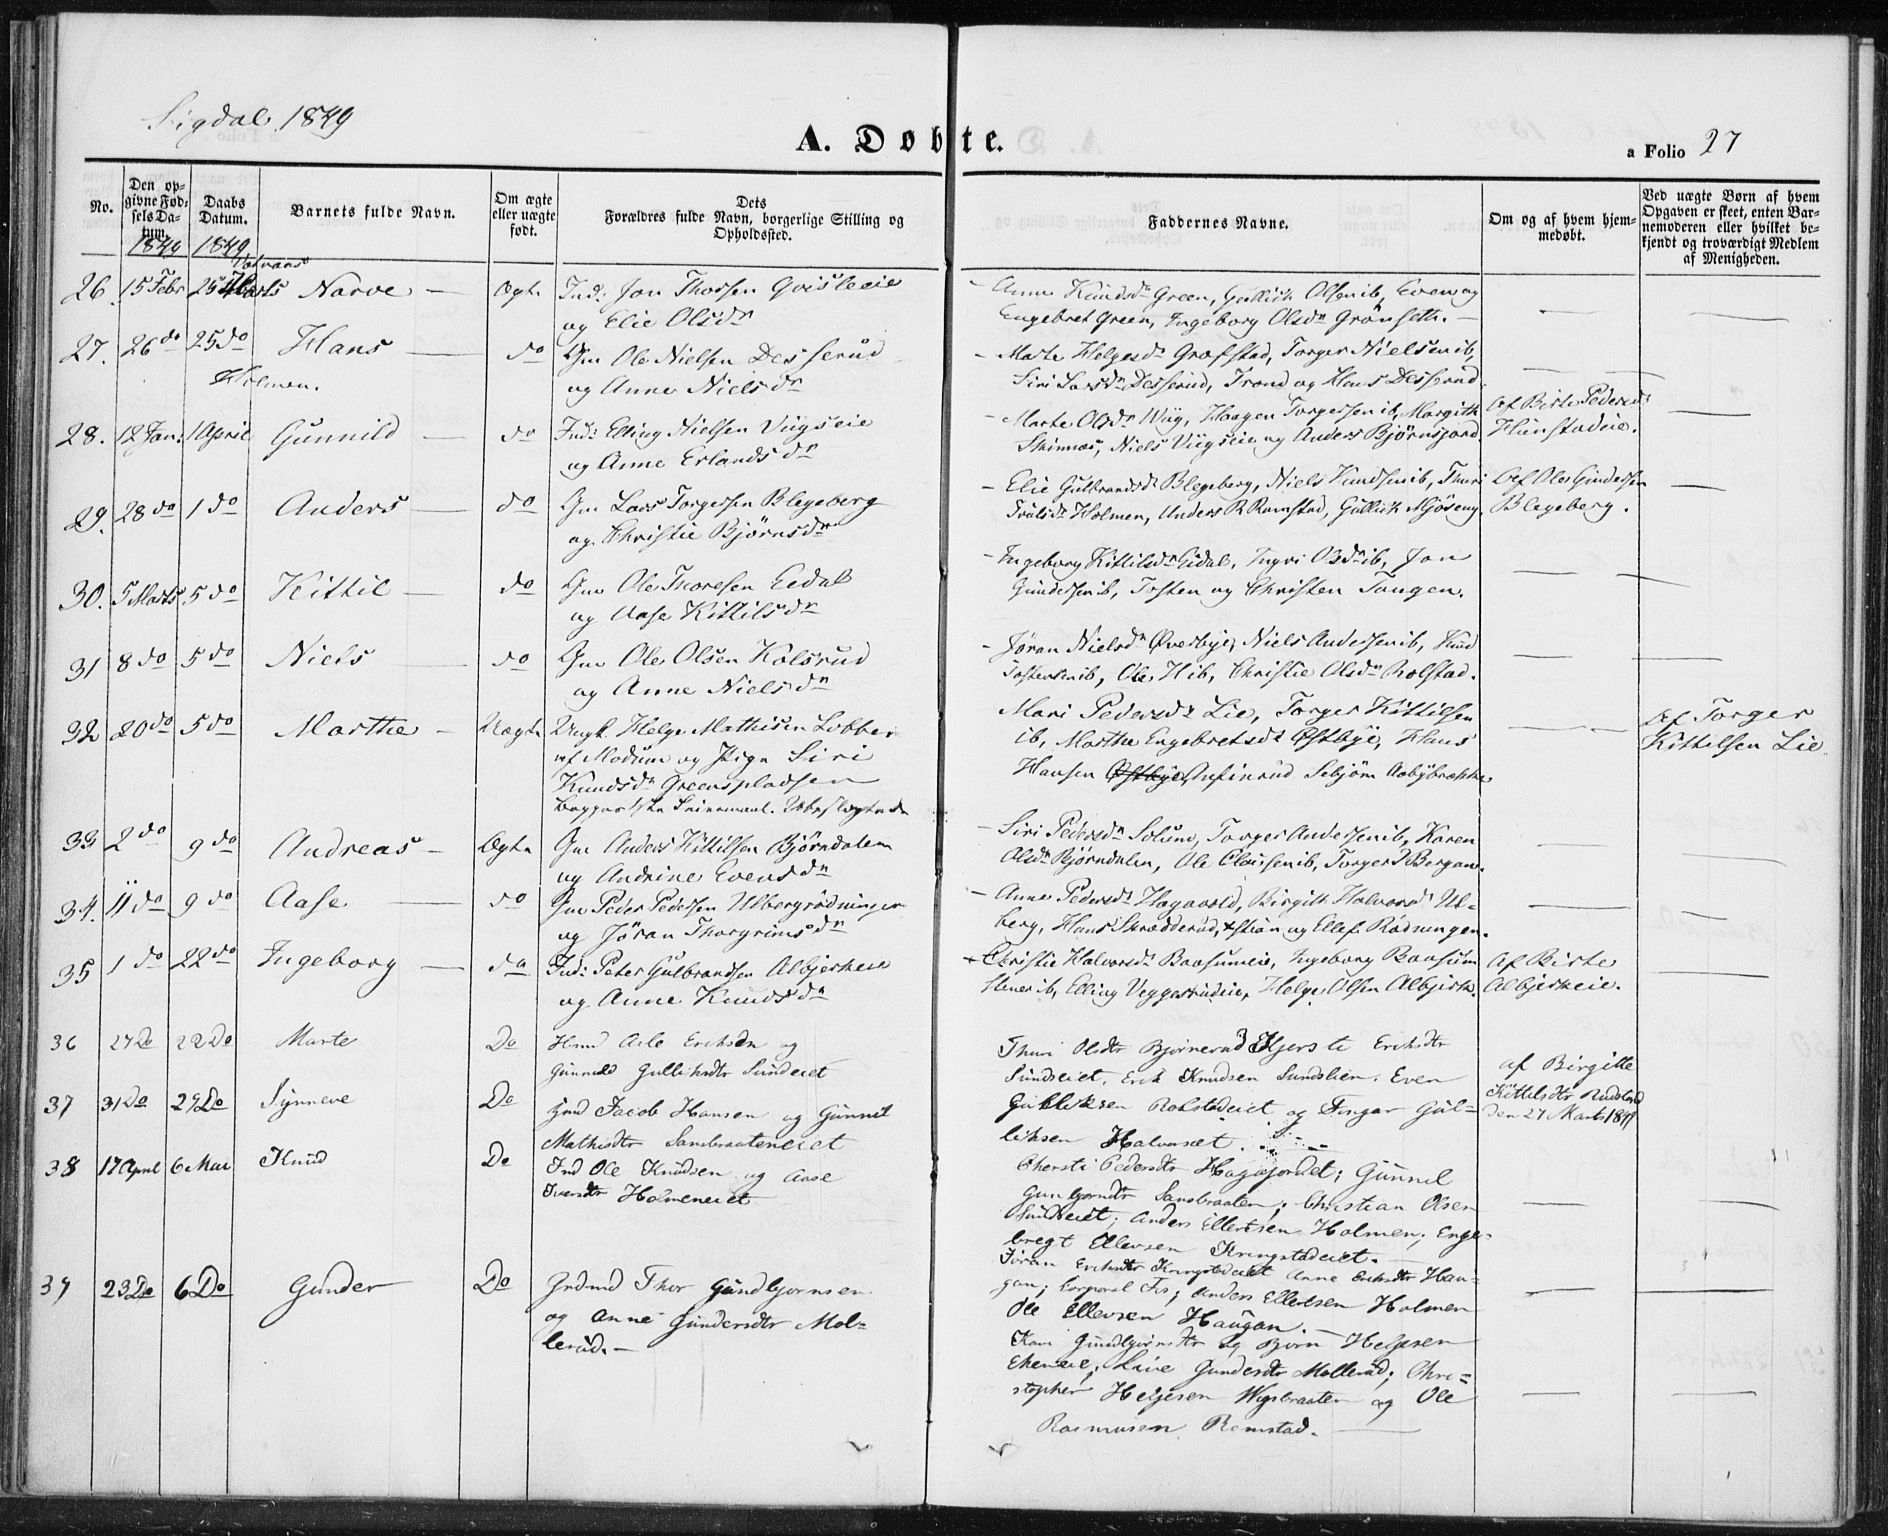 Sigdal 1849
A. Døbte.
a Folio 27
No.
Den op-
givne Fød-
sels Da-
tum.
1849
Daabs
Datum.
1849
Barnets fulde Navn.
Om ægte
eller uægte
født.
Dets
Forældres fulde Navn, borgerlige Stilling og
Opholdssted.
Faddernes Navne.
Om og af hvem hjem-
medøbt.
Ved uægte Børn af hvem
Opgaven er skeet, enten Bar-
nemoderen eller hvilket be-
kjendt og troværdigt Medlem
af Menigheden.
26. 15 Febr 25 Marts Narve Ægte Ind: Jon Thorsen
og Elie Olsdr
Anne Knudsdr Green, Gullich Olsen ib, Even og
Engebret Green, Ingeborg Olsdr Grønseth.
27. 26 do 25 do Hans do Gm Ole Nielsen Desserud
og Anne Nielsdr
Marte Helgesdr Græfstad, Torger Nielsen ib,
Siri Larsdr Desserud, Trond og Hans Desserud.
Holmen.
28. 12 Jan: 1 April Gunnild do Ind: Elling Nielsen Viigseie
og Anne Erlandsdr
Marte Olsdr Wiig, Haagen Torgersen ib, Margith
Skinnæs, Niels Viigseie og Anders Bjørnsjord.
Af Birte Pedersdr
Hunstadeie.
29. 28 do 1 do Anders do Gm Lars Torgersen Blegeberg
og Christie Bjørnsdr
Elie Gulbrandsdr Blegeberg, Niels Knudsen ib, Thuri
Trulsdr Holmen, Anders R Ramstad, Gullich Mjøseng.
Af Ole Gundersen
Blegeberg.
30. 5 Marts 5 do Kittil do Gm Ole Thoresen Eidal
og Aase Kittilsdr
Ingeborg Kittilsdr Eidal, Ingri Olsdr ib, Jon
Gundersen ib, Tosten og Christen Tangen.
31 8 do 5 do Niels do Gm Ole Olsen Kolsrud
og Anne Nielsdr
Jøran Nielsdr Øvrebye, Niels Andersen ib, Knud
Tostensen ib, Ole H ib, Christie Olsdr Rolstad.
32 20 do 5 do Marthe Uægte Ungk. Helge Mathisen Lobben
af Modum og Pige Siri
Knudsdr Greenspladsen
Mari Pedersdr Lie, Torger Kittilsen
ib, Marthe Engebretsdr Østbye, Hans
Hansen Østbye,
Af Torger
Kittelsen Lie
33 2 do 9 do Andreas Ægte Gm Anders Kittilsen Bjørndalen
og Andrine Evensdr
Siri Pedersdr Solum, Torger Andersen ib, Karen
Olsdr Bjørndalen, Ole Clausen ib, Torger T Bergan.
34. 11 do 9 do Aase do Gm Peder Pedersen Ulbergrødningen
og Jøran Thorgrimsdr
Anne Pedersdr Hagavold, Birgith Halvorsdr Ul-
berg, Hans Skrædderud, Stian og Ellef Rødningen.
35 1 do 22 do Ingeborg do Ind: Peter Gulbrandsen Albjerkeie
og Anne Knudsdr
Christie Halvorsdr Baasumeie, Ingeborg Baasum
Stener ib, Elling Veggesrudeie, Helge Olsen Albjerk.
Af Birte
Albjerkeie.
36 27 Do 22 Do Marte Do Hmd Asle Eriksen og
Gunnild Gulliksdtr Sundeiet
Thuri Olsdtr Bjørnerud Kjersti Eriksdtr
Sundseiet, Erik Knudsen Sundslien. Even
37 31 Do 29 Do Synneve Do Gmd Jacob Hansen og Gunnil
Mathisdtr Sandbraateneiet
Gulliksen Rolstadeiet og Fingar Gul-
liksen Halvorsæt.
af Birgitte
Kittilsdtr Rudstad
den 27 Marts 1849
38 17 April 6 Mai Knud Do Ind Ole Knudsen og Aase
Iversdtr Holmeneiet
Chersti Pedersdtr Hagajordet; Gunnil
Gunbjorndtr Sandbraaten; Christian Olsen
Sundeiet; Anders Ellertsen Holmen; Enge-
bregt Ellevsen Kringstadeiet.
39 23 Do 6 Do Gunder Do Grdmd Thor Gundbjornsen
og Anne Gundersdtr Mol-
lerud.
Jöran Eriksdtr Kringstadeiet Anne Eriksdtr Hau-
gan; Corporal Fis; Anders Ellertsen Holmen
Ole Ellevsen Haugan.
Kari Gundbjornsdtr og Bjørn Helgesen
Ekeneie; Live Gundersdtr Mollerud; Chri-
stopher Helgesen Wigsbraaten og Ole
Rasmusen Ramstad.